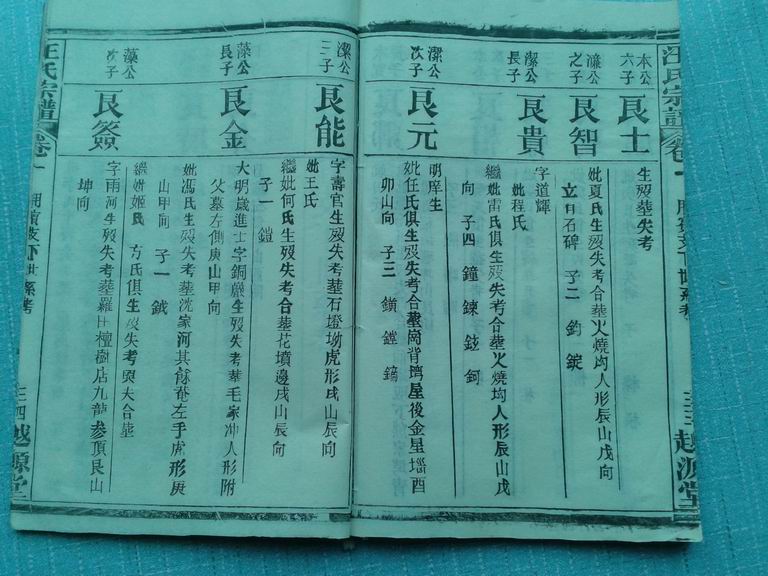 本公
六子
艮士
生歿葬失考
濂公
之子
艮智
妣夏氏生歿失考合葬火燒坳人形辰山戌向
立有石碑 子二 鈞錠
潔公
長子
艮貴
字道輝
妣程氏
繼妣雷氏俱生歿失考合葬火燒坳人形辰山戌
向 子四 鐘鍊鉉鈳
潔公
次子
艮元
明庠生
妣任氏俱生歿失考合葬崗背塆屋後金星堖酉
卯山向 子三 鎮鏜鏑
潔公
三子
艮能
字壽官生歿失考葬石墱坳虎形戌山辰向
妣王氏
繼妣何氏生歿失考合葬花墳邊戌山辰向
子一 鎧
藻公
長子
艮金
大明歲進士字銅嚴生歿失考葬毛家冲人形附
父墓左側庚山甲向
妣馮氏生歿失考葬沈家河其餘菴左手虎形庚
山甲向 子一 鉞
藻公
次子
艮簽
繼妣姬氏 方氏俱生歿失考與夫合葬
字雨河生歿失考葬羅田檀樹店九龍參頂艮山
坤向
汪氏宗譜
卷一
三四
越源堂
汪氏宗譜
卷一
三三
越源堂